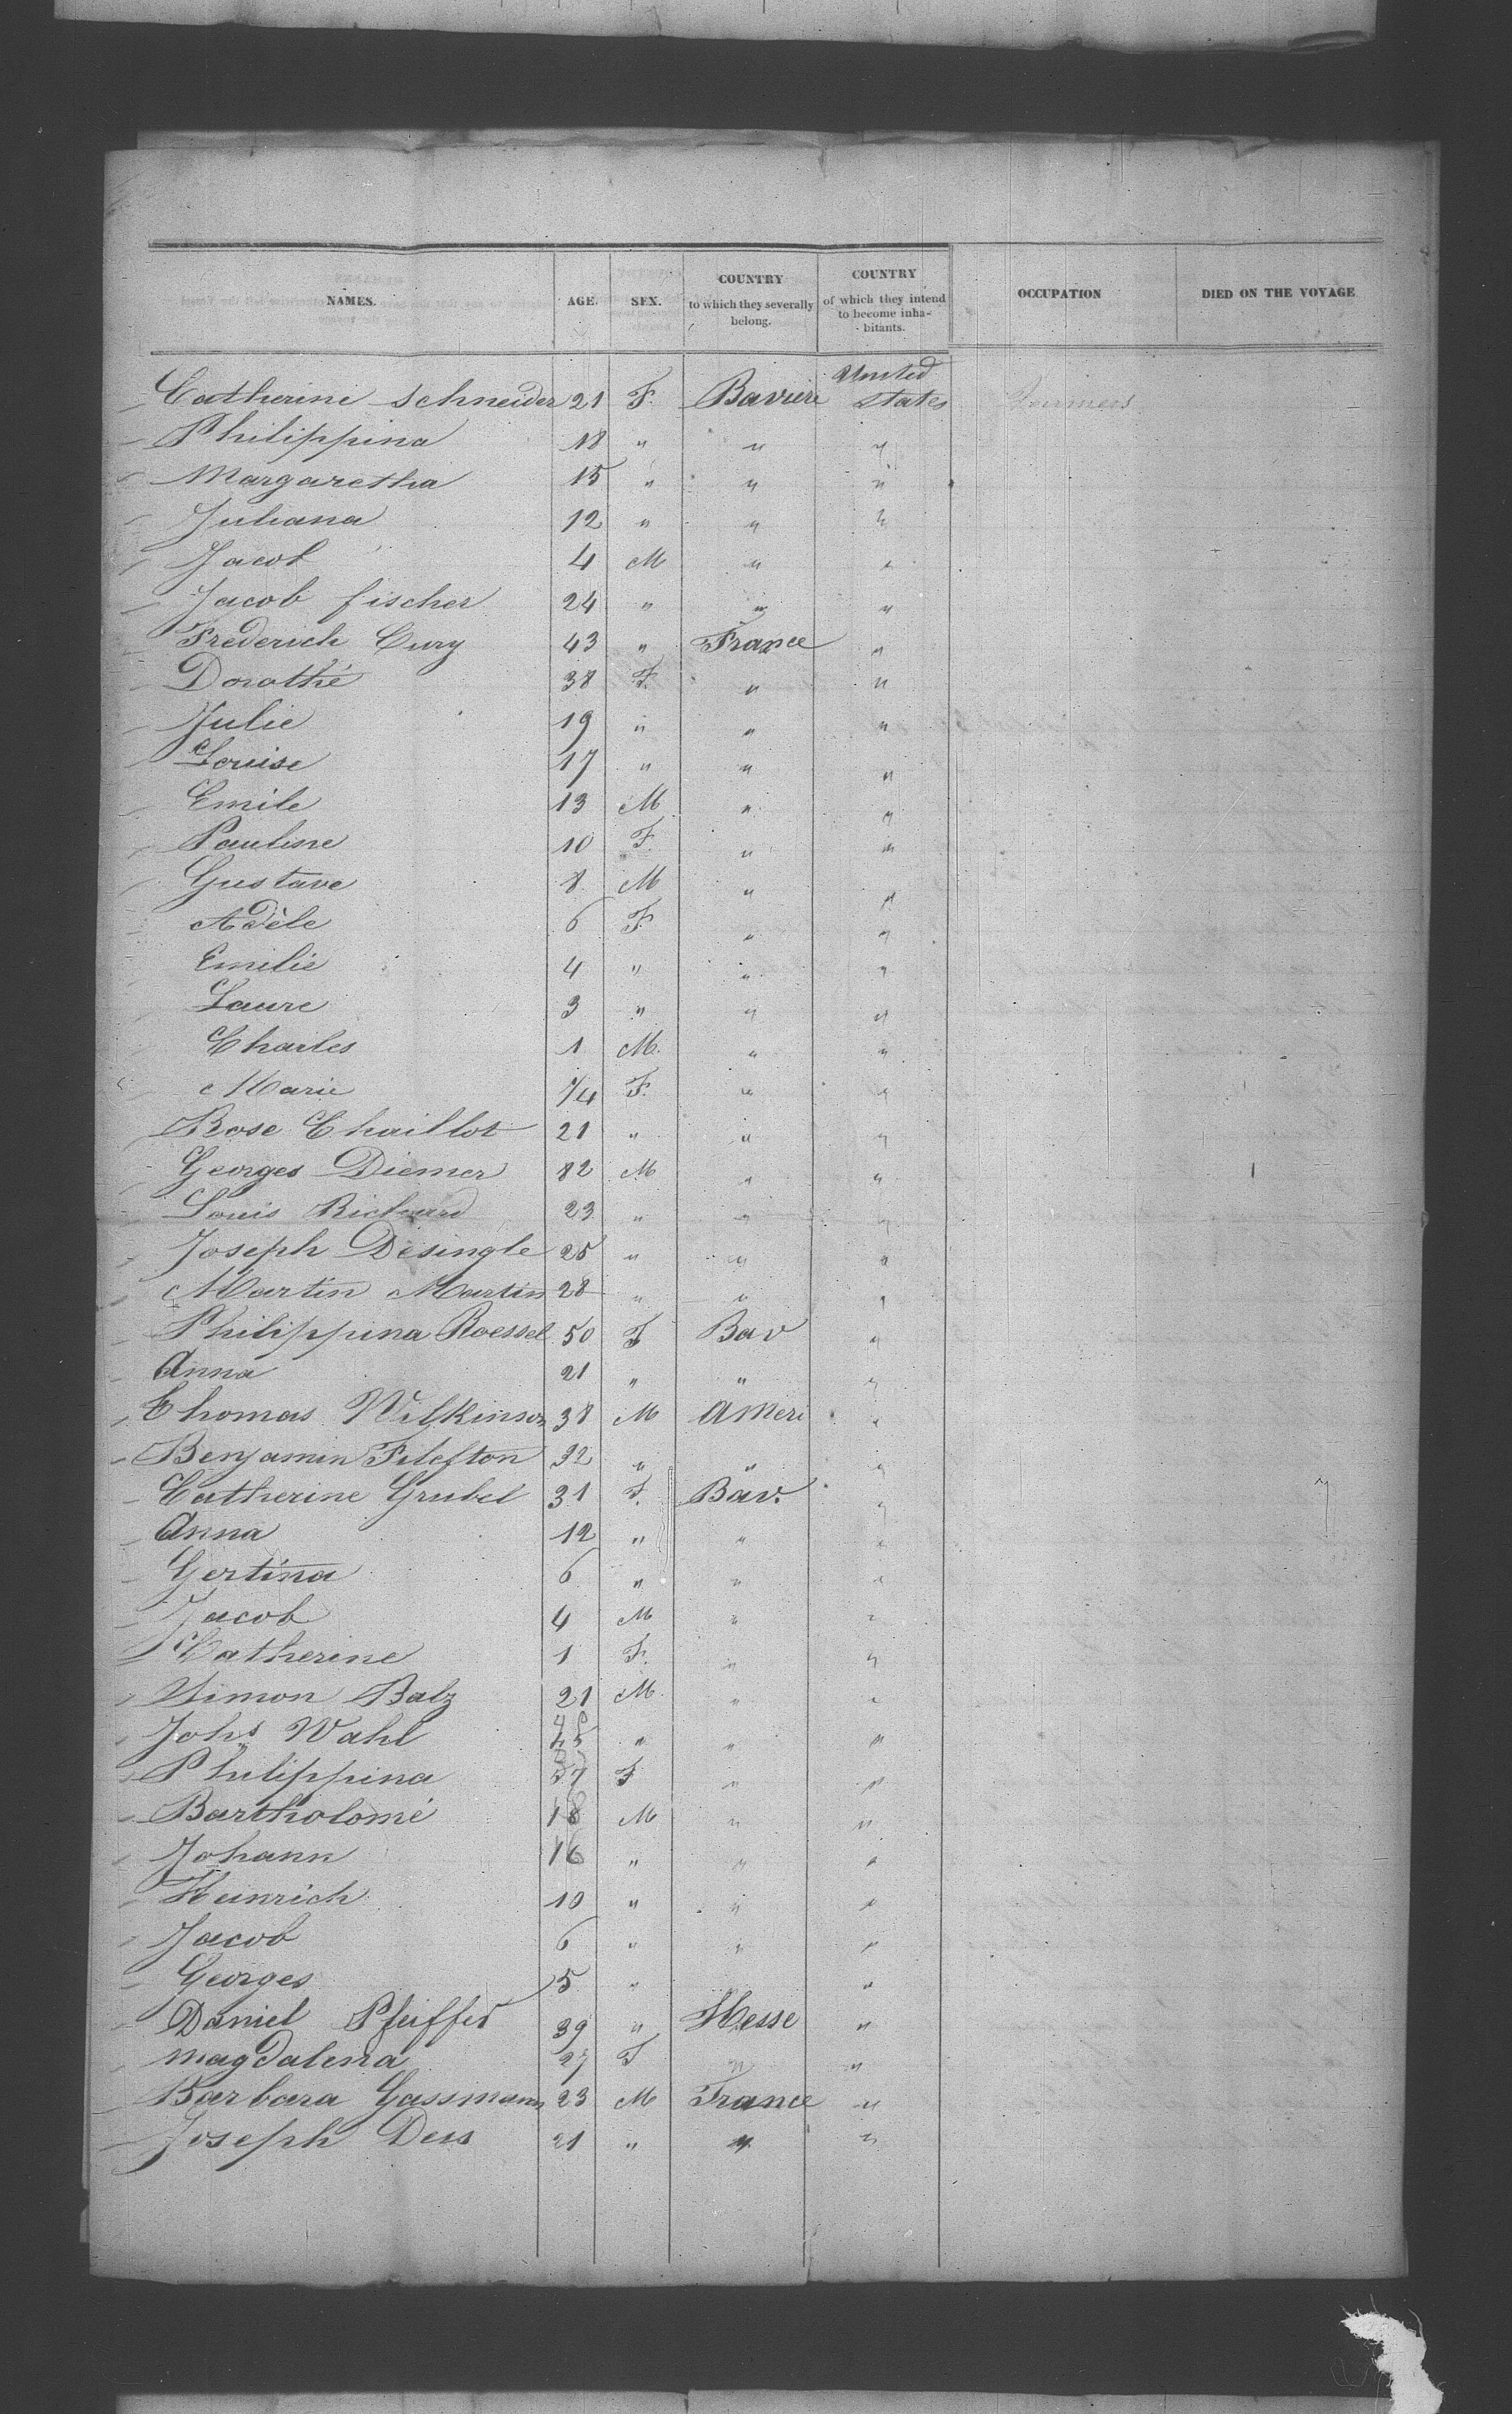 NAMES. AGE. SEX. COUNTRY to which they severally belong. COUNTRY of which they intend to become inhabitants. OCCUPATION DIED ON THE VOYAGE
Catherine Schneider 21 F. Baviere United States
Philippina 18 " " "
Margaretha 15 " " "
Juliana 12 " " "
Jacob 4 M " "
Jacob fischer 24 " " "
Frederich Cury 43 " France "
Dorothé 38 F. " "
Julie 19 " " "
Louise 17 " " "
Emile 13 M " "
Pauline 10 F. " "
Gustave 8 M " "
Adèle 6 F. " "
Emilie 4 " " "
Laure 3 " " "
Charles 1 M. " "
Marie 1/4 F. " "
Rose Chaillot 21 " " "
Georges Diemer 82 M " "
Louis Richard 23 " " "
Joseph Desingle 25 " " "
Martin Martin 28 " " "
Philippina Roessel 50 F Bav "
Anna 21 " " "
Thomas Wilkinson 38 M Ameri "
Benjamin 32 " " "
Catherine Grubel 31 F. Bav. "
Anna 12 " " "
Gertina 6 " " "
Jacob 4 M " "
Catherine 1 F. " "
Simon Balz 21 M " "
Johs Wahl " " "
Philippina F " "
Bartholomé 18 M " "
Johann 16 " " "
Heinrich 10 " " "
Jacob 6 " " "
Georges 5 " " "
Daniel Pfeiffer 39 " Hesse "
Magdalena 27 F " "
Barbara Gassmann 23 M France "
Joseph Deis 21 " " "